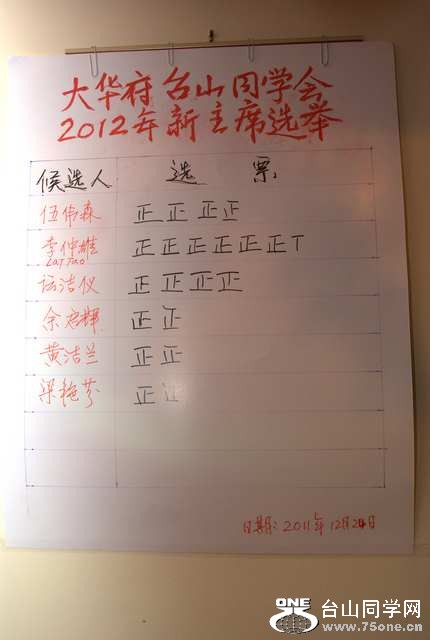 大华府台山同学会
2012年新主席选举
候选人 选 票
伍伟森 正 正 正 正
李仲维 正 正 正 正 正 正 T
洁仪 正 正 正 正
余启辉 正 正
黄洁兰 正 正
梁艳芬 正
日期: 2011年12月24日
ONE
75
台山同学网
www.75one.cn